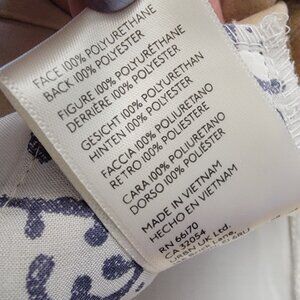 FACE 100% POLYURETHANE
BACK 100% POLYESTER
FIGURE 100% POLYURÉTHANE
DERRIÈRE 100% POLYESTER
GESICHT 100% POLYURETHAN
HINTEN 100% POLYESTER
FACCIA 100% POLIURETANO
RETRO 100% POLIESTERE
CARA 100% POLIURETANO
DORSO 100% POLIÉSTER
MADE IN VIETNAM
HECHO EN VIETNAM
RN 66170
CA 32054
URBN UK Ltd.